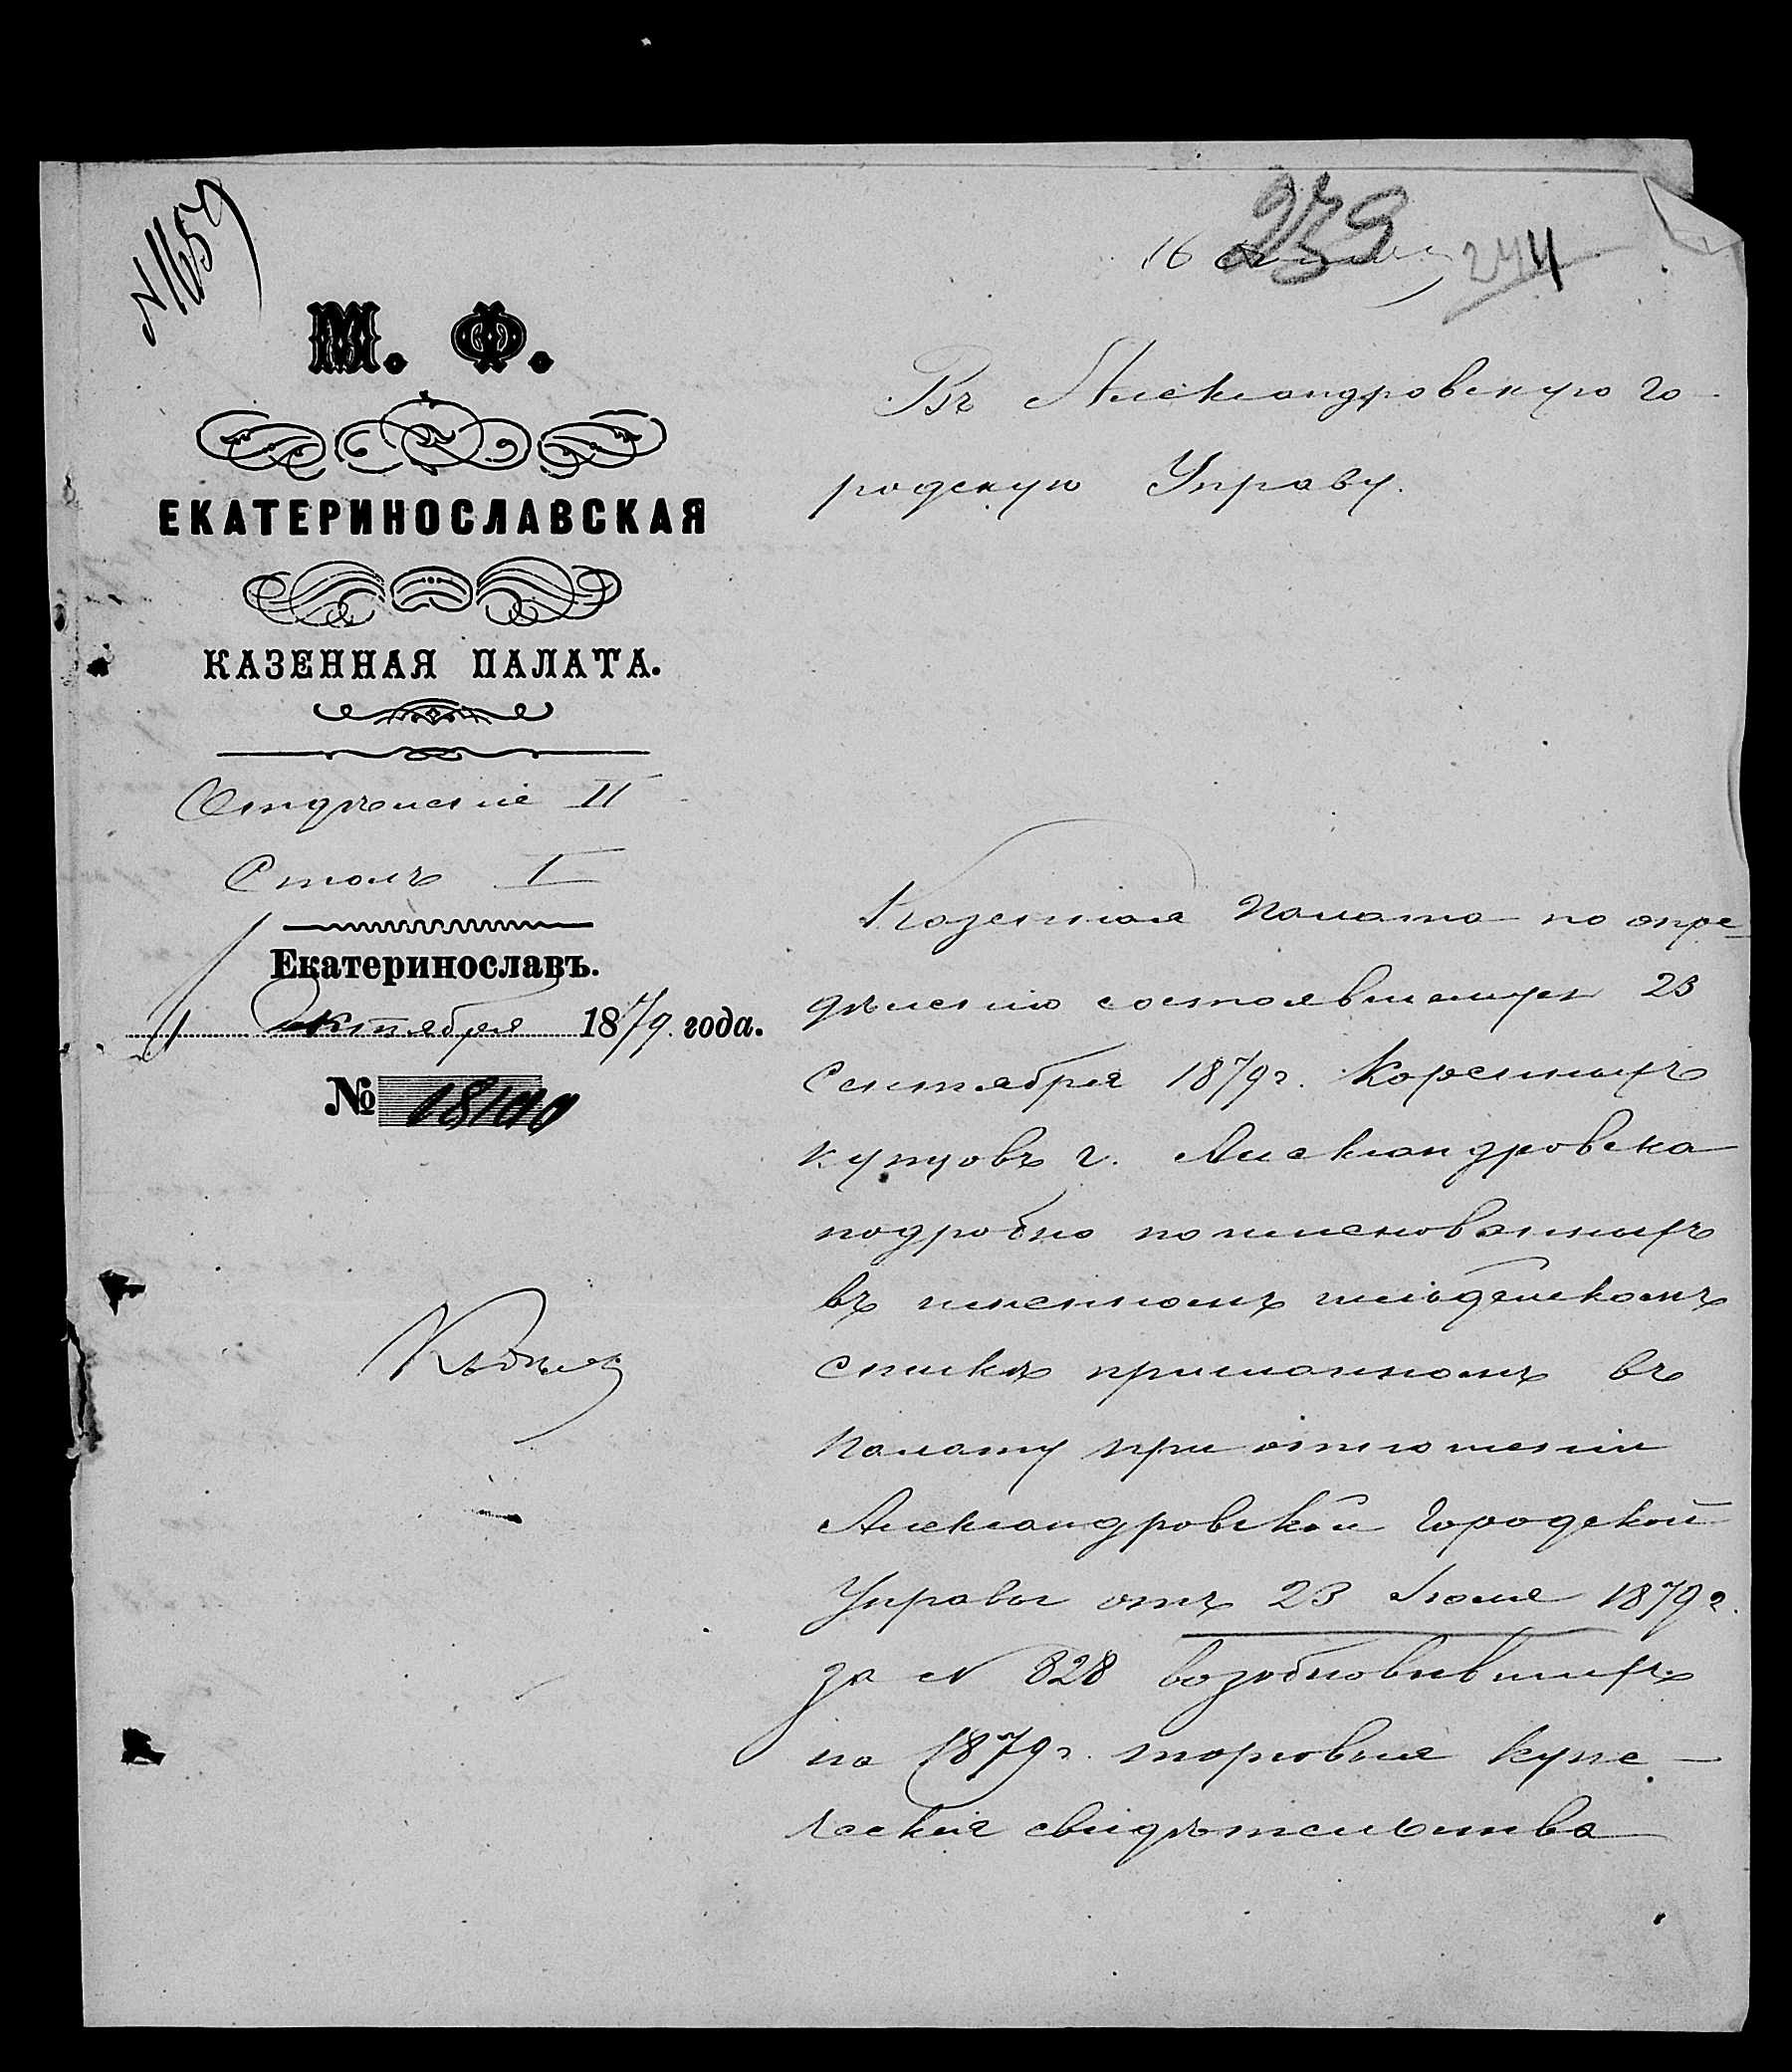 N 1659
239
16
244
М. Ф.
ЕКАТЕРИНОСЛАВСКАЯ
КАЗЕННАЯ ПАЛАТА.
Отдѣленіе II
Столъ I
Екатеринославъ.
1 Октября 1879 года.
№ 18100
Въ Александровскую Го-
родскую Управу.
Казенная Палата по опре-
дѣленію состоявшемуся 23
Сентября 1879 г. Коренныхъ
купцовъ г. Александровска
подробно поименованныхъ
въ именномъ гильдейскомъ
спискѣ присланномъ въ
Палату при отношеніи
Александровской Городской
Управы отъ 23 Іюля 1879 г.
за N 828 возобновившихъ
на 1879 г. торговыя купе-
ческія свидѣтельства